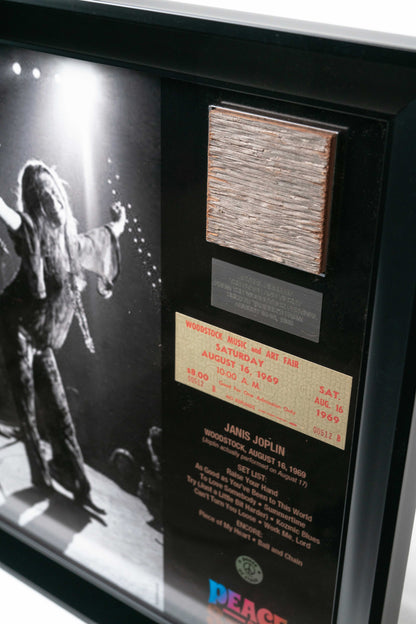 WOODSTOCK MUSIC and ART FAIR
SATURDAY
AUGUST 16, 1969
10:00 A. M.
$8.00
Good For One Admission Only
00512 B
NO REFUNDS
SAT.
AUG. 16
1969
00512 B
JANIS JOPLIN
WOODSTOCK, AUGUST 16, 1969
(Joplin actually performed on August 17)
SET LIST:
Raise Your Hand
As Good as You've Been to This World
To Love Somebody • Summertime
Try (Just a Little Bit Harder) • Kozmic Blues
Can't Turn You Loose • Work Me, Lord
ENCORE:
Piece of My Heart • Ball and Chain
PEACE